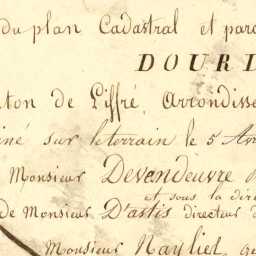 du plan Cadastral et parc
DOURD
ton de Liffré, Arrondisse
iné sur le terrain le 5 Av
Monsieur Devendeuvre
et sous la dire
de Monsieur D'astis directeur d
Monsieur Nayliez, gé